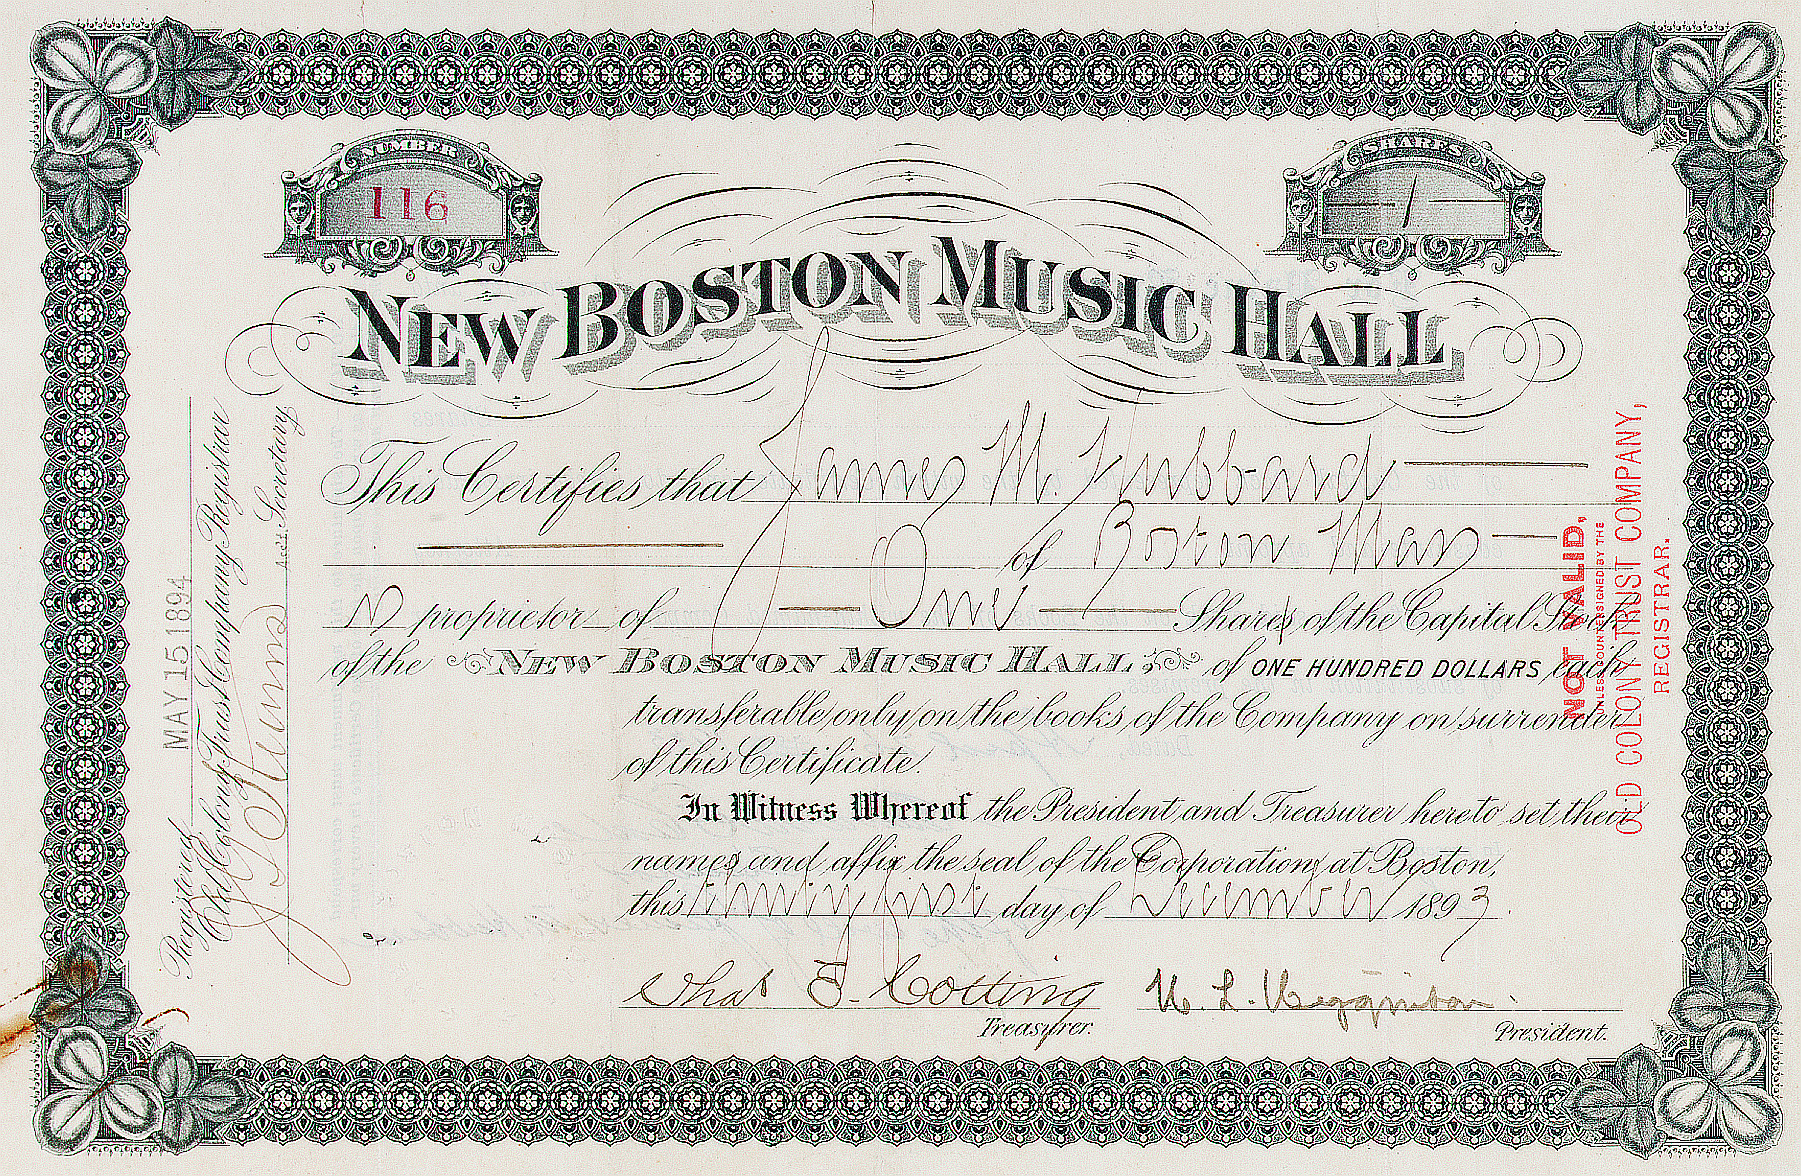 NUMBER
116
SHARES
1
NEW BOSTON MUSIC HALL
This Certifies that James M. Hubbard
of Boston Mass
is proprietor of One Shares of the Capital Stock
of the NEW BOSTON MUSIC HALL of ONE HUNDRED DOLLARS each
transferable only on the books of the Company on surrender
of this Certificate.
In Witness Whereof the President and Treasurer hereto set their
names and affix the seal of the Corporation at Boston,
this twenty first day of December 1893.
Chas E. Cotting
Treasurer.
President.
Registered MAY 15 1894
Old Colony Trust Company Registrar
Ass't Secretary
NOT VALID,
UNLESS COUNTERSIGNED BY THE
OLD COLONY TRUST COMPANY,
REGISTRAR.